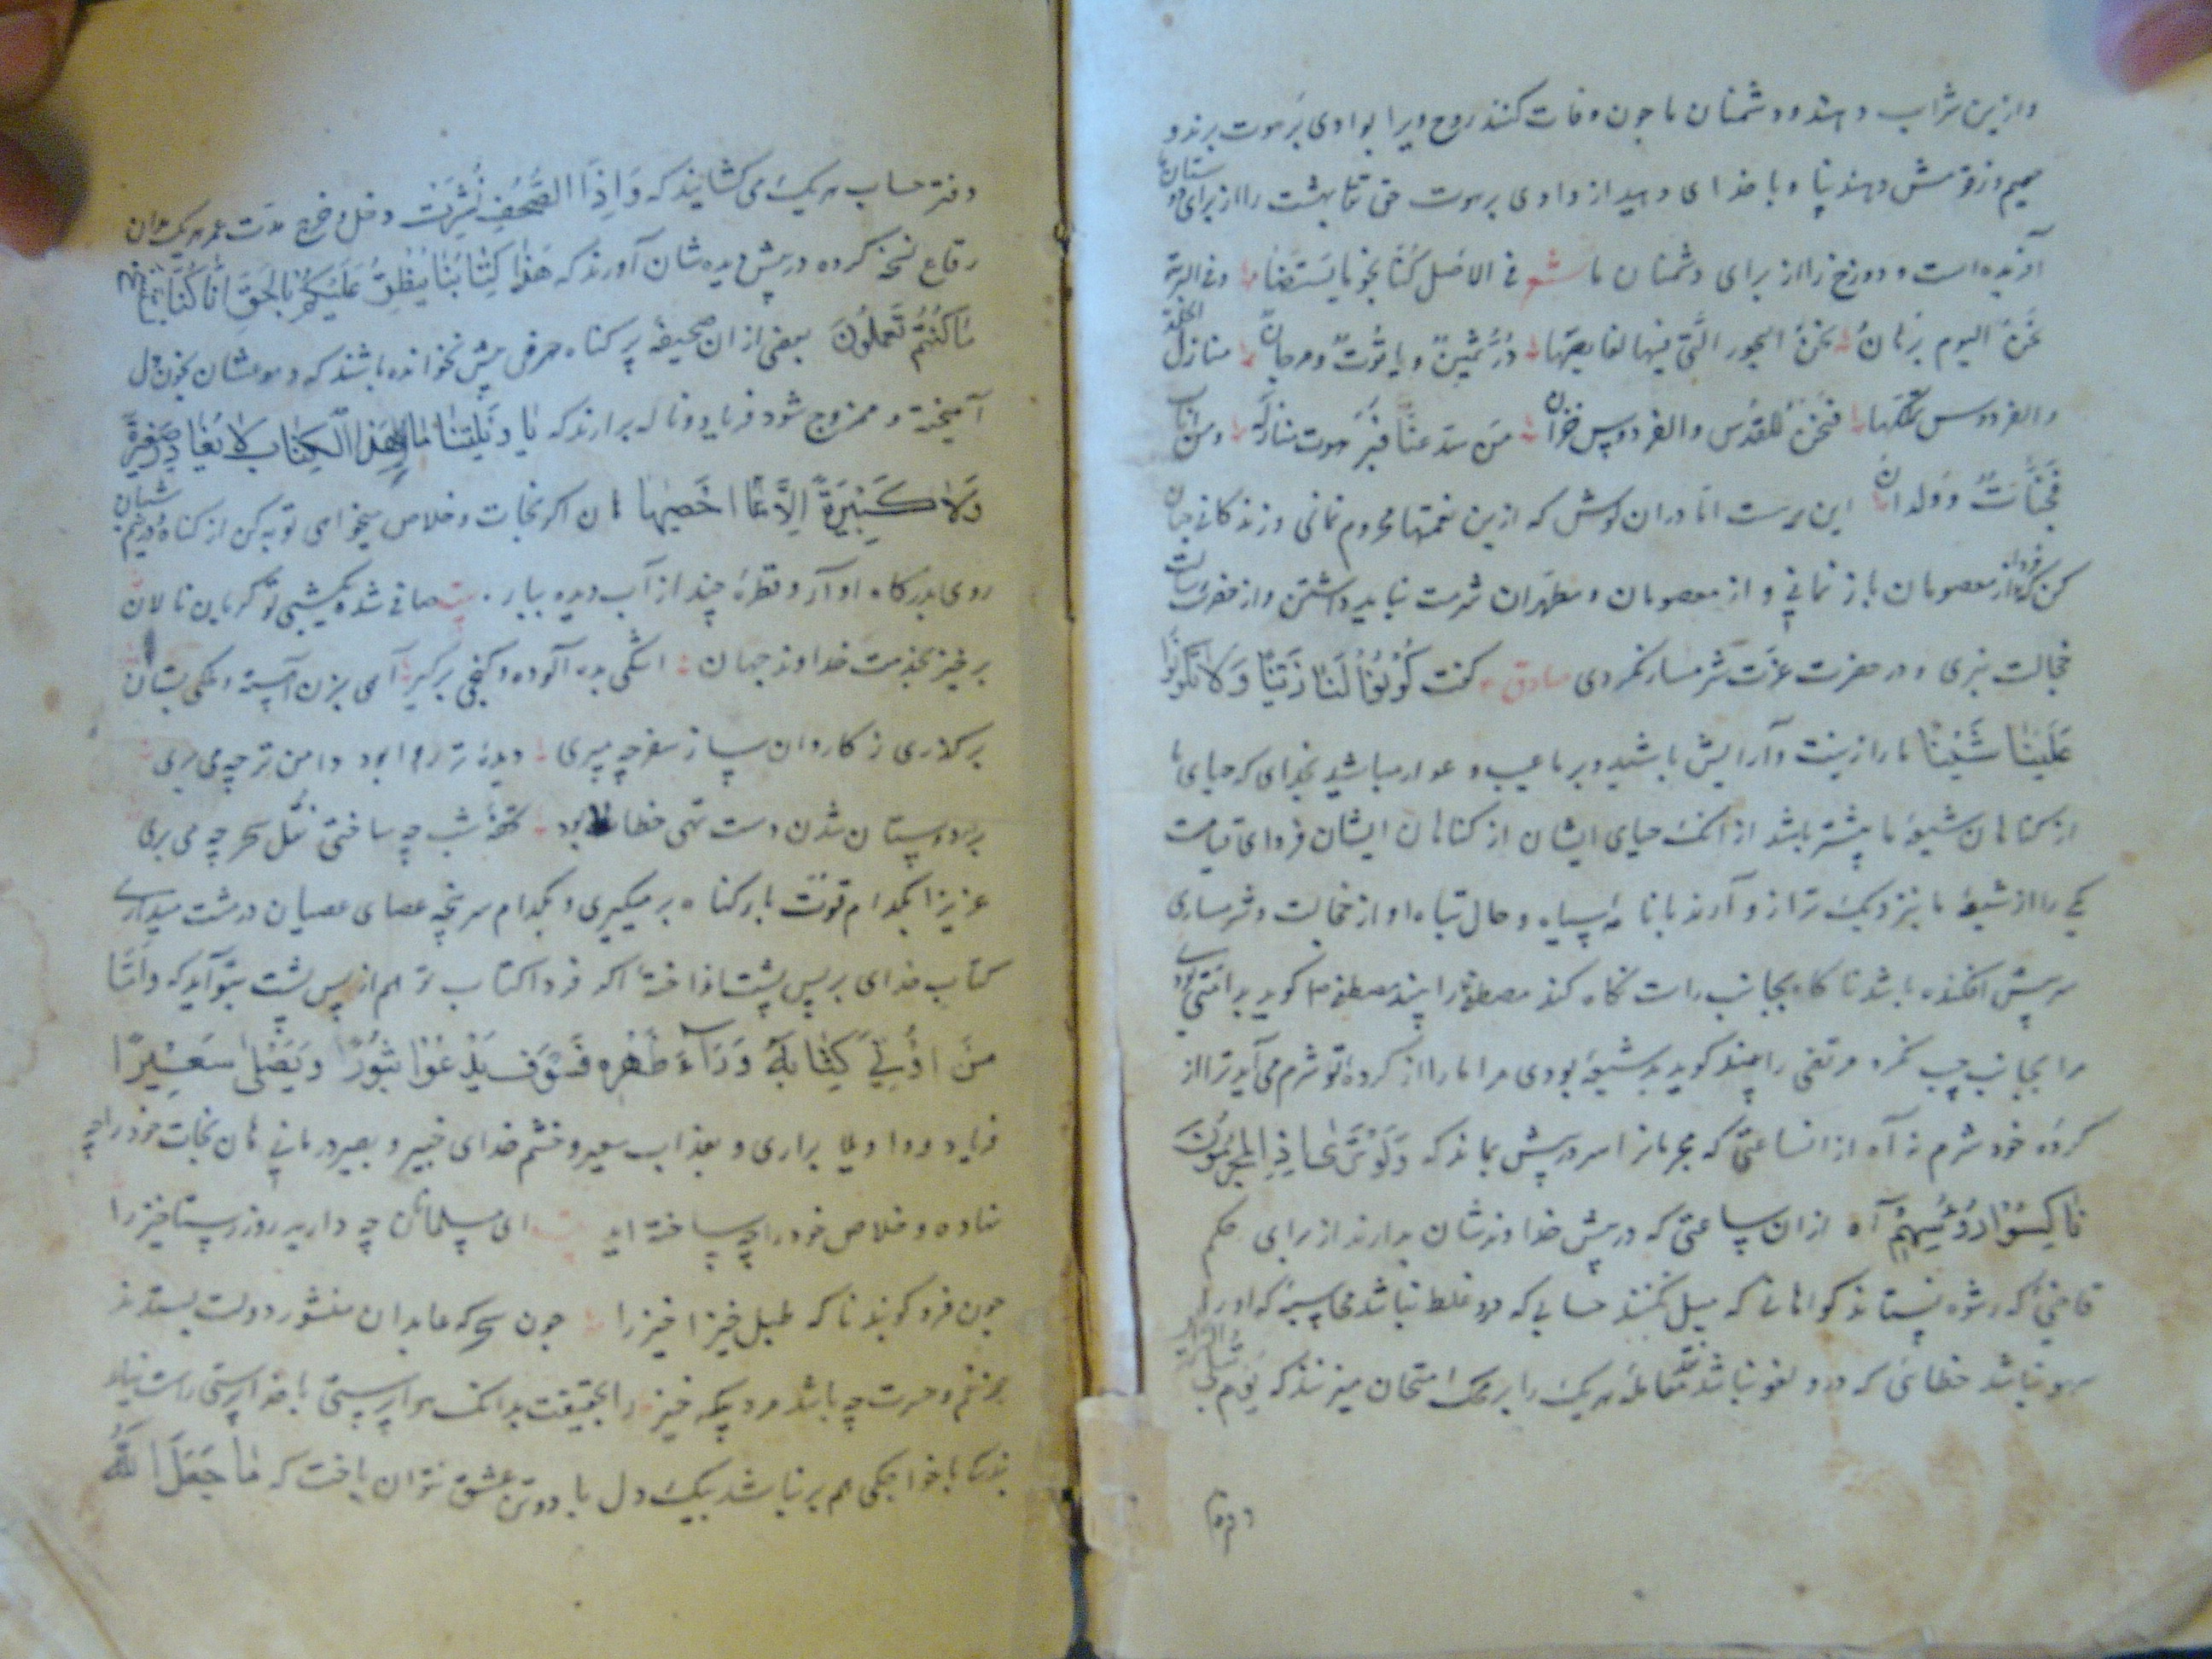 وازین شراب دهند و دشمنان ما چون وفات کنند روح ویرا بوادی برهوت برند و
حمیم و زقومش دهند پناه با خدای دهید از وادی برهوت حق تعا بهشت را از برای دوستان ما
آفریده است و دوزخ را از برای دشمنان ما شعر فی الاصل کنا نجوما یستضاء بنا وفی البریة
نحن الیوم برهان نحن البحور التی فیها لغایصها در ثمین و یاقوت و مرجان منازل الخلد
والفردوس نملکها فنحن للقدس والفردوس خزان من شذ عنا فبرهوت منازله ومن اتانا
فجنات وولدان این هست اما دران کوش که ازین نعمتها محروم نمانی و زندکانی چنان
کن که فردا از معصومان باز نمانی و از معصومان و مطهران شرمت نباید داشتن و از حضرت رسالت
خجالت نبری و در حضرت عزت شرمسار نکردی صادق ع کفت کونوا لنا زینا ولا تکونوا
علینا شینا ما را زینت و آرایش باشید و بر ما عیب و عوار مباشید بخدای که حیای ما
از کناهان شیعه ما بیشتر باشد از انک حیای ایشان از کناهان ایشان فردای قیامت
یکی را از شیعه ما بنزدیک ترازو آرند با نامه سیاه و حال تباه او از خجالت و شرمساری
سر پیش افکنده باشد ناکاه بجانب راست نکاه کند مصطفی را بیند مصطفی ص کوید بد امتی بودی
مرا بجانب چپ نکرد مرتضی را بیند کوید بد شیعه بودی مرا ما را از کرده تو شرم می آید ترا از
کرده خود شرم نه آه از انساعتی که مجرمانرا سر در پیش بماند که ولو تری اذ المجرمون
ناکسوا رؤسهم آه ازان ساعتی که در پیش خداوندشان بدارند از برای حکم
قاضئی که رشوه نستاند کواهانی که میل نکنند حسابی که درو غلط نباشد محاسبی که او را
سهو نباشد خطابی که درو لغو نباشد معامله هر یک را بر محک امتحان میزنند که یوم تبلی السرائر
دفتر
دفتر حساب هر یک می کشایند که واذا الصحف نشرت دخل و خرج مدت عمر هر یک بران
رقاع نسخ کرده در پیش دیده شان آورند که هذا کتابنا ینطق علیکم بالحق انا کنا نستنسخ
ما کنتم تعملون بعضی از ان صحیفه پر کناه حرفی بیش نخوانده باشند که دموعشان بخون دل
آمیخته و ممزوج شود فریاد و ناله برارند که یا ویلتنا مال هذا الکتاب لا یغادر صغیرة
ولا کبیرة الا احصیها هان اکر نجات و خلاص میخواهی توبه کن از کناه و در نیم شبان
روی بدرکاه او آر و قطره چند از آب دیده ببار بیت صافی شده یکشبی تو کریان نالان
برخیز بخدمت خداوند جهان اشکی بده آلوده و کنجی برکیر آهی بزن آهسته و ملکی بستان
بر کذری ز کاروان ساز سفر چه میبری دیده تر روا بود دامن تر چه می بری
بر دوستان شدن دست تهی خطا بود تحفه شب چه ساختی نقل سحر چه می بری
عزیزا بکدام قوت بار کناه بر میکیری و بکدام سرپنجه عصای عصیان درمشت میداری
کتاب خدای بر پس پشت انداخته اکر فردا کتاب تو هم از پس پشت بتو آید که واما
من اوتی کتابه وراء ظهره فسوف یدعوا ثبورا ویصلی سعیرا
فریاد و واویلا براری و بعذاب سعیر و خشم خدای خبیر و بصیر درمانی هان نجات خود را چه
نهاده و خلاص خود را چه ساخته اید بیت ای مسلمانان چه دارید روز رستاخیز را
چون فرو کوبند ناکه طبل خیزا خیز را چون سحرکه عابدان منشور دولت بستدند
جز غم و حسرت چه باشد مرد بیکه خیز را بحقیقت بدانک هواپرستی با خداپرستی راست نیاید
بندکی با خواجکی هم بر نباشد بیک دل با دو تن عشق نتوان باخت که ما جعل الله